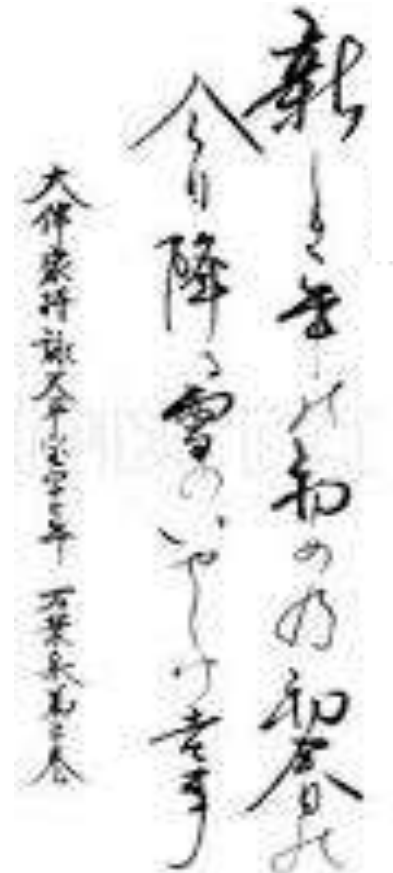 新しき年の初めの初春の
今日降る雪のいやしけ吉事
大伴家持 天平宝字三年 万葉集